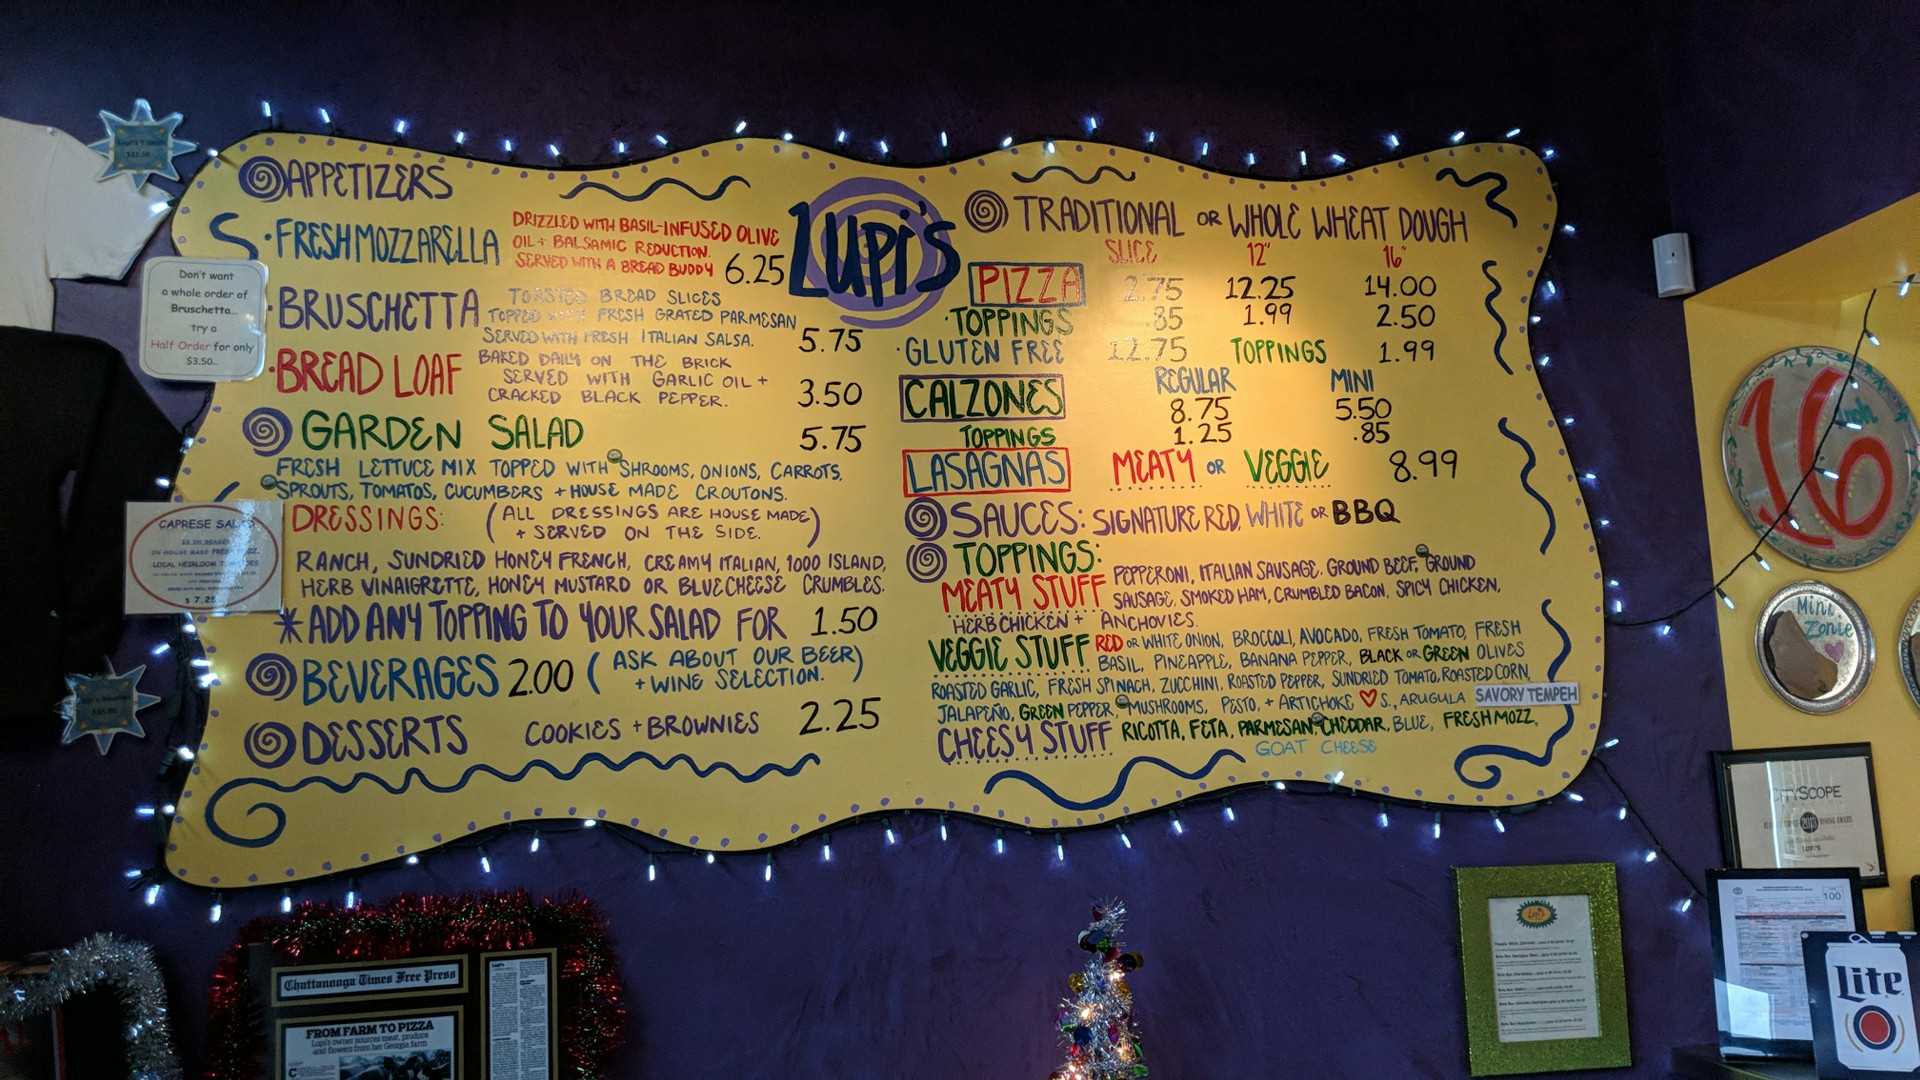 APPETIZERS
FRESH MOZZARELLA
DRIZZLED WITH BASIL-INFUSED OLIVE
OIL + BALSAMIC REDUCTION.
SERVED WITH A BREAD BUDDY 6.25
BRUSCHETTA
TOASTED BREAD SLICES
TOPPED WITH FRESH GRATED PARMESAN
SERVED WITH FRESH ITALIAN SALSA. 5.75
BREAD LOAF
BAKED DAILY ON THE BRICK
SERVED WITH GARLIC OIL +
CRACKED BLACK PEPPER. 3.50
GARDEN SALAD 5.75
FRESH LETTUCE MIX TOPPED WITH SHROOMS, ONIONS, CARROTS,
SPROUTS, TOMATOS, CUCUMBERS + HOUSE MADE CROUTONS.
DRESSINGS: (ALL DRESSINGS ARE HOUSE MADE
+ SERVED ON THE SIDE.)
RANCH, SUNDRIED HONEY FRENCH, CREAMY ITALIAN, 1000 ISLAND,
HERB VINAIGRETTE, HONEY MUSTARD OR BLUE CHEESE CRUMBLES.
*ADD ANY TOPPING TO YOUR SALAD FOR 1.50
BEVERAGES 2.00 (ASK ABOUT OUR BEER
+ WINE SELECTION.)
DESSERTS COOKIES + BROWNIES 2.25
Lupi's
TRADITIONAL OR WHOLE WHEAT DOUGH
SLICE 12" 16"
PIZZA 2.75 12.25 14.00
TOPPINGS .85 1.99 2.50
GLUTEN FREE 12.75 TOPPINGS 1.99
REGULAR MINI
CALZONES 8.75 5.50
TOPPINGS 1.25 .85
LASAGNAS MEATY OR VEGGIE 8.99
SAUCES: SIGNATURE RED, WHITE OR BBQ
TOPPINGS:
MEATY STUFF PEPPERONI, ITALIAN SAUSAGE, GROUND BEEF, GROUND
SAUSAGE, SMOKED HAM, CRUMBLED BACON, SPICY CHICKEN,
HERB CHICKEN + ANCHOVIES.
VEGGIE STUFF RED OR WHITE ONION, BROCCOLI, AVOCADO, FRESH TOMATO, FRESH
BASIL, PINEAPPLE, BANANA PEPPER, BLACK OR GREEN OLIVES
ROASTED GARLIC, FRESH SPINACH, ZUCCHINI, ROASTED PEPPER, SUNDRIED TOMATO, ROASTED CORN,
JALAPEÑO, GREEN PEPPER, MUSHROOMS, PESTO, + ARTICHOKE ♥S., ARUGULA SAVORY TEMPEH
CHEESY STUFF RICOTTA, FETA, PARMESAN, CHEDDAR, BLUE, FRESH MOZZ,
GOAT CHEESE
Don't want
a whole order of
Bruschetta...
try a
Half Order for only
$3.50...
CAPRESE SALAD
LOCAL HEIRLOOM TOMATOES
$7.25
16
Mini
Zonie
CITYSCOPE
LUPI'S
100
Lite
Chattanooga Times Free Press
FROM FARM TO PIZZA
Lupi's owner sources meat, produce
and flowers from her Georgia farm